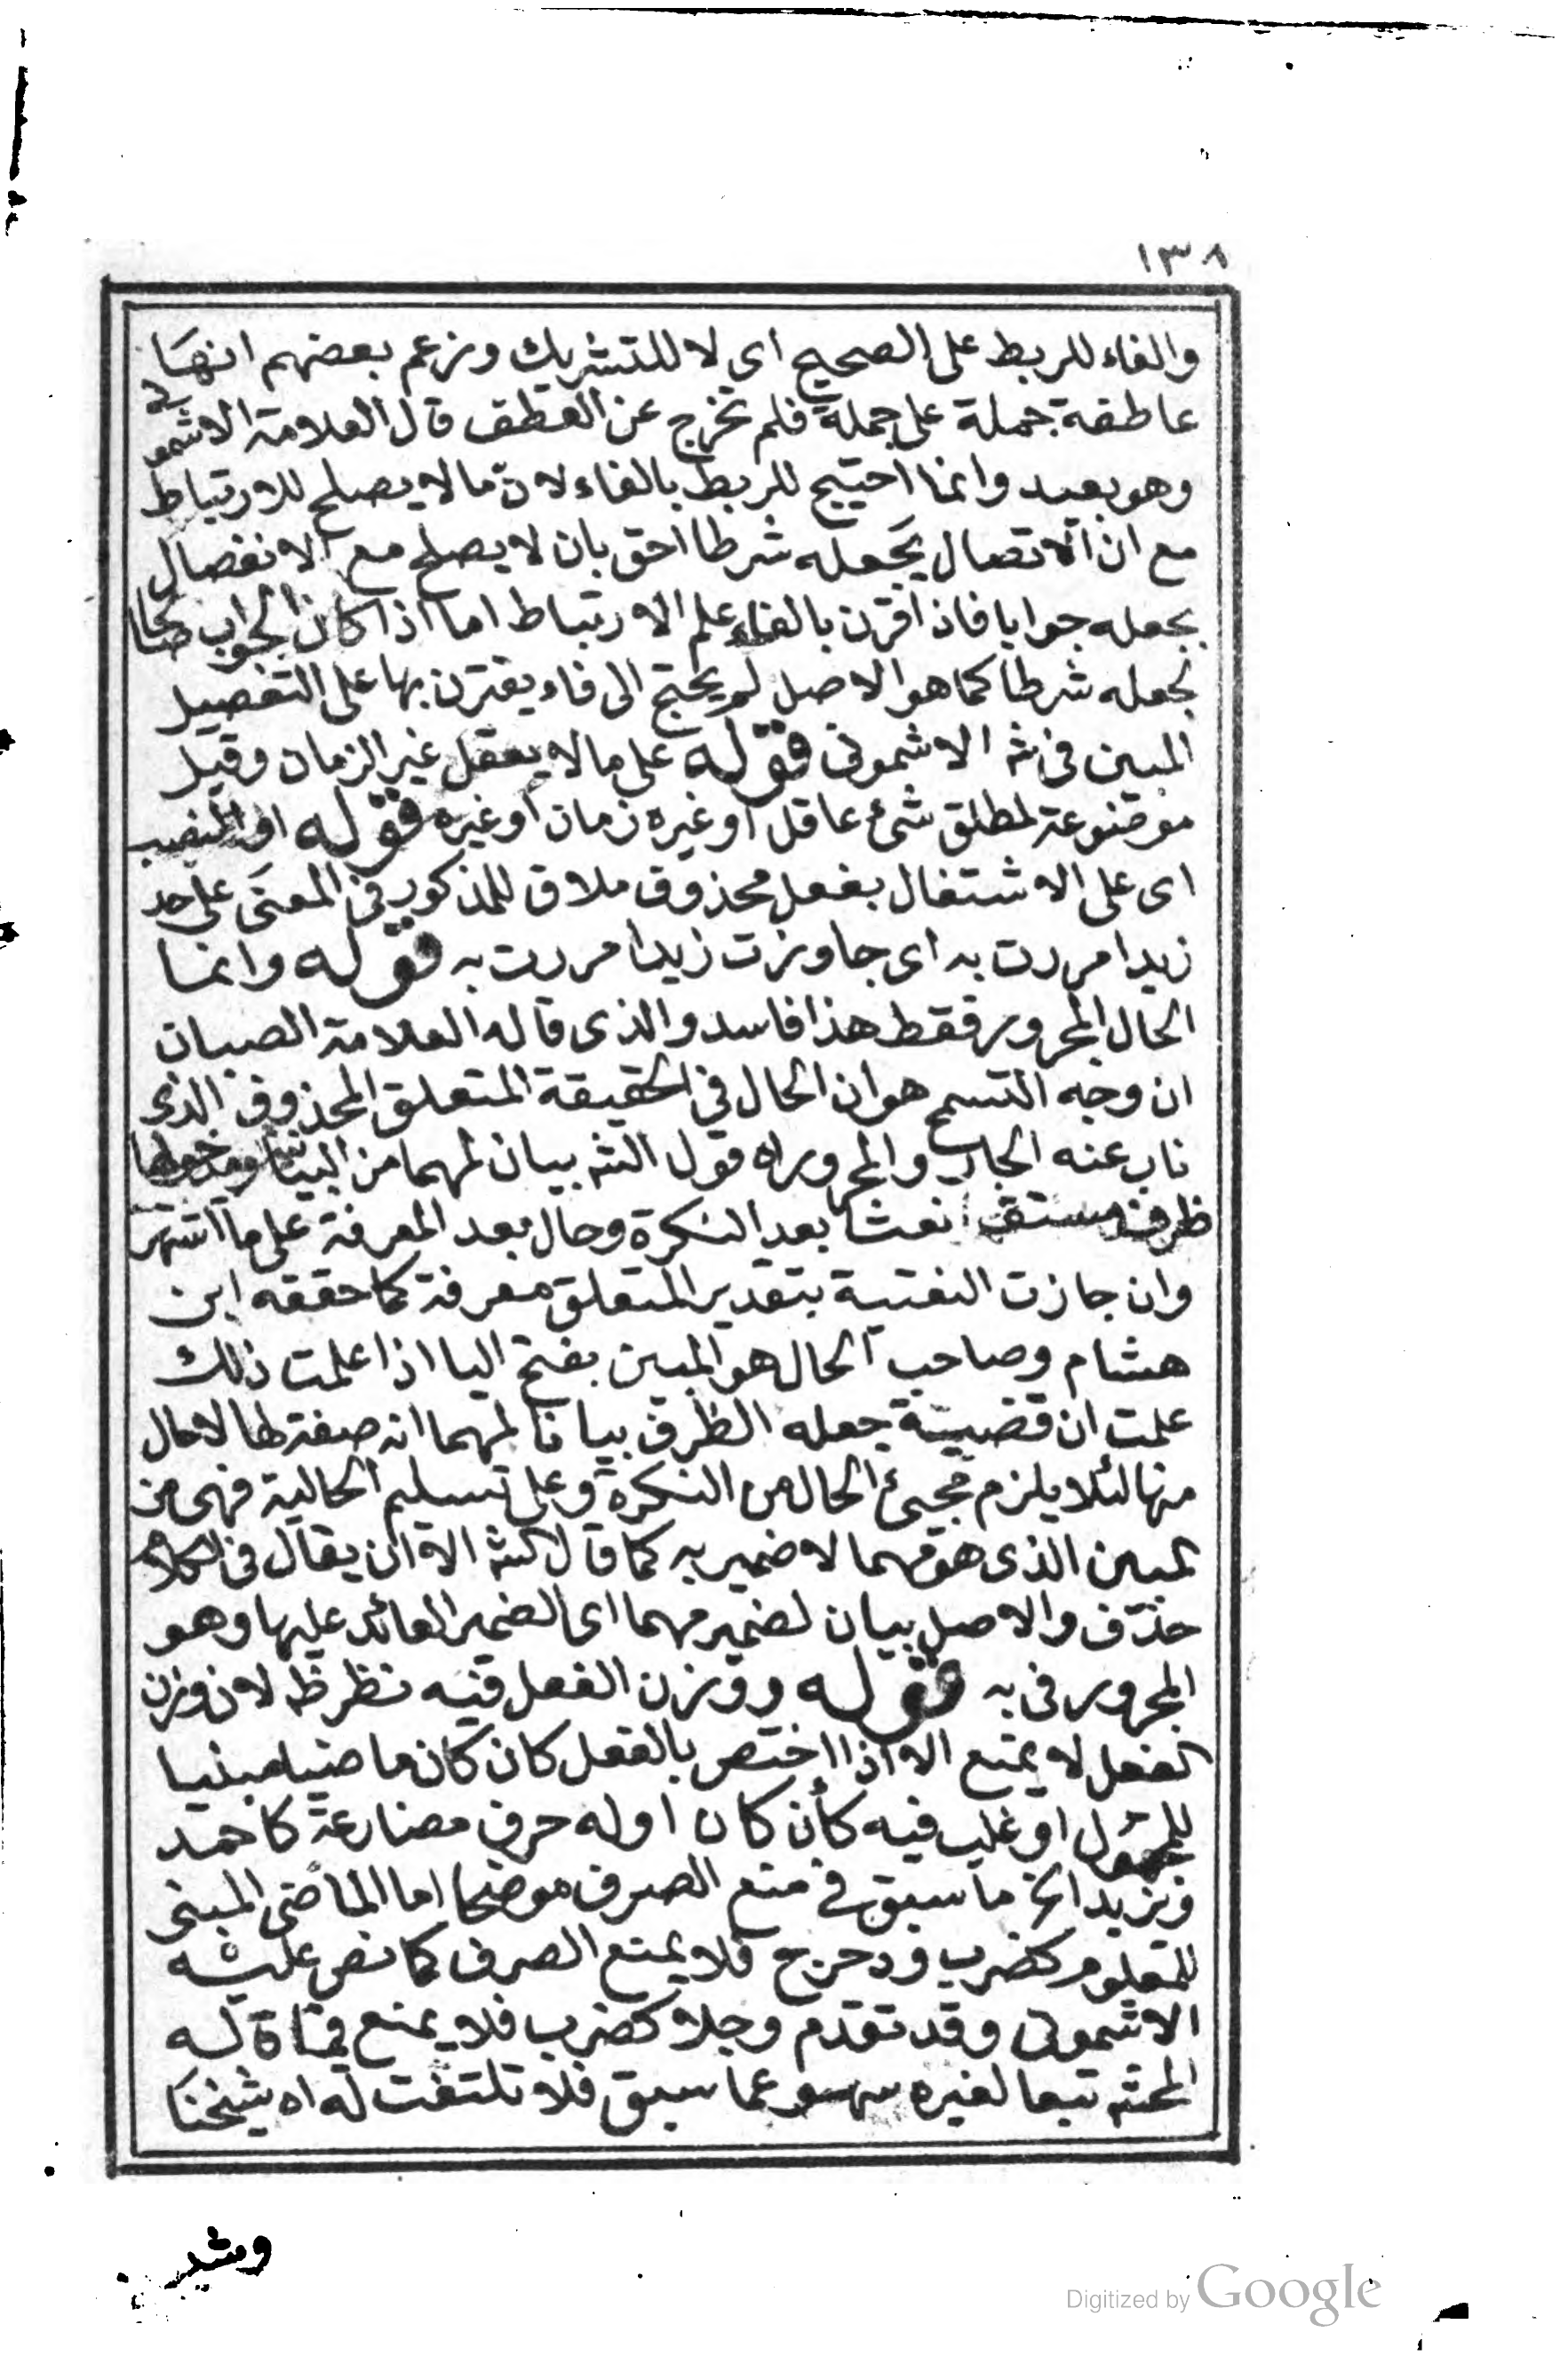 ١٣٨
والفاء للربط على الصحيح اى لا للتشريك وزعم بعضهم انها
عاطفة جملة على جملة فلم تخرج عن العطف قال العلامة الاشمونى
وهو بعيد وانما احتيج للربط بالفاء لان ما لا يصلح للارتباط
مع ان الاتصال بجعله شرطا احق بان لا يصلح مع الانفصال
بجعله جوابا فاذا قرن بالفاء علم الارتباط اما اذا كان الجواب صالحا
لجعله شرطا كما هو الاصل لم يحتج الى فاء يقترن بها على التفصيل
المبين فى شه الاشمونى قوله على ما لا يعقل غير الزمان وقيل
موضوعة لمطلق شئ عاقل او غيره زمان او غيره قوله او النصب
اى على الاشتغال بفعل محذوف ملاق للمذكور فى المعنى على حد
زيدا مررت به اى جاوزت زيدا مررت به قوله وانما
الحال المجرور فقط هذا فاسد والذى قاله العلامة الصبان
ان وجه التسمح هو ان الحال فى الحقيقة المتعلق المحذوف الذى
ناب عنه الجار والمجرور اه قول الشه بيان لمهما من البيان
ظرف مستقر نعتا بعد النكرة وحال بعد المعرفة على ما اشتهر
وان جازت النعتية بتقدير المتعلق معرفة كما حققه ابن
هشام وصاحب الحال هو المبين بفتح اليا اذا علمت ذلك
علمت ان قضية جعله الظرف بيانا لمهما انه صفة لها لا حال
منها لئلا يلزم مجىء الحال من النكرة وعلى تسليم الحالية فهى من
المبين الذى هو مهما لا ضمير به كما قال الشه الا ان يقال فى الكلام
حذف والاصل بيان لضمير مهما اى الضمير العائد عليها وهو
المجرور فى به قوله ووزن الفعل فيه نظر ظ لان وزن
الفعل لا يمنع الا اذا اختص بالفعل كان كان ماضيا مبنيا
للمجهول او غلب فيه كأن كان اوله حرف مضارعة كاحمد
ويزيد الخ ما سبق فى منع الصرف موضحا اما الماضى المبنى
للمعلوم كضرب ودحرج فلا يمنع الصرف كما نص عليه
الاشمونى وقد تقدم وجلا كضرب فلا يمنع فما قاله
المحشه تبعا لغيره سهو عما سبق فلا تلتفت له اه شيخنا
وشير
Digitized by Google